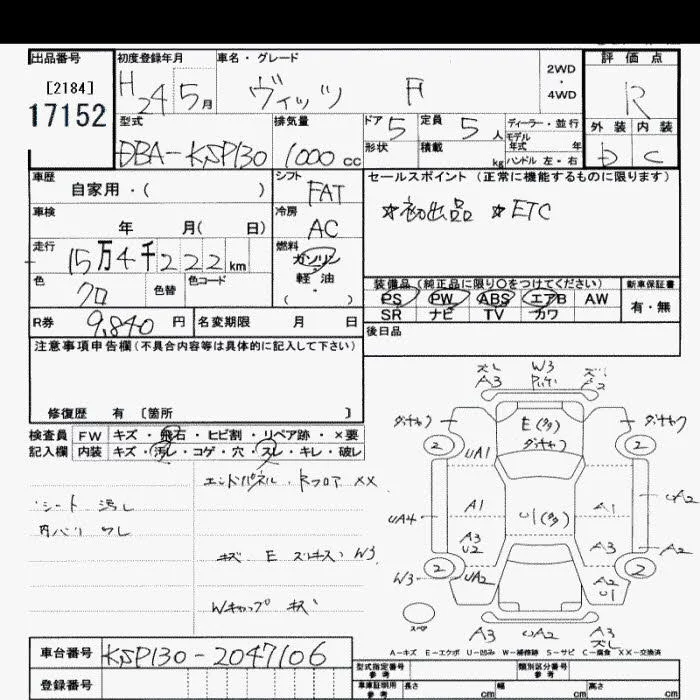 出品番号
[2184]
17152
初度登録年月
H24 5月
車名・グレード
ヴィッツ F
2WD
・
4WD
評価点
R
外装 内装
D C
型式
DBA-KSP130
排気量
1000cc
ドア 5
定員 5人
ディーラー・並行
モデル
年式 年
形状
積載 kg
ハンドル 左・右
車歴
自家用・( )
シフト
FAT
セールスポイント(正常に機能するものに限ります)
☆初出品 ☆ETC
車検
年 月( 日)
冷房
AC
走行
15万4千222km
燃料
ガソリン
軽・油
( ・ )
色
クロ
色替
色コード
装備品(純正品に限り○をつけてください)
新車保証書
PS PW ABS エアB AW
有・無
SR ナビ TV カワ
R券
9,840円
名変期限 月 日
後日品
注意事項申告欄(不具合内容等は具体的に記入して下さい)
修復歴 有 [箇所 ]
検査員 FW キズ・飛石・ヒビ割・リペア跡・×要
記入欄 内装 キズ・汚レ・コゲ・穴・スレ・キレ・破レ
エンドパネル・Rフロア XX
シート 汚レ
内バリ ワレ
キズ E スレキズ W3
Wキャップ キズ
ズレ
A3
W3
E(多)
UA1
A1
U1(多)
A1
UA2
UA4
A3
U2
A3
A2
W3
UA2
A2
U1
2
2
2
2
スペア
A3
UA2
A3
ズレ
A-キズ E-エクボ U-凹み W-補修跡 S-サビ C-腐食 XX-交換済
車台番号
KSP130-2047106
登録番号
型式指定番号
参考
類別区分番号
参考
車庫証明用
参考
長さ cm
幅 cm
高さ cm